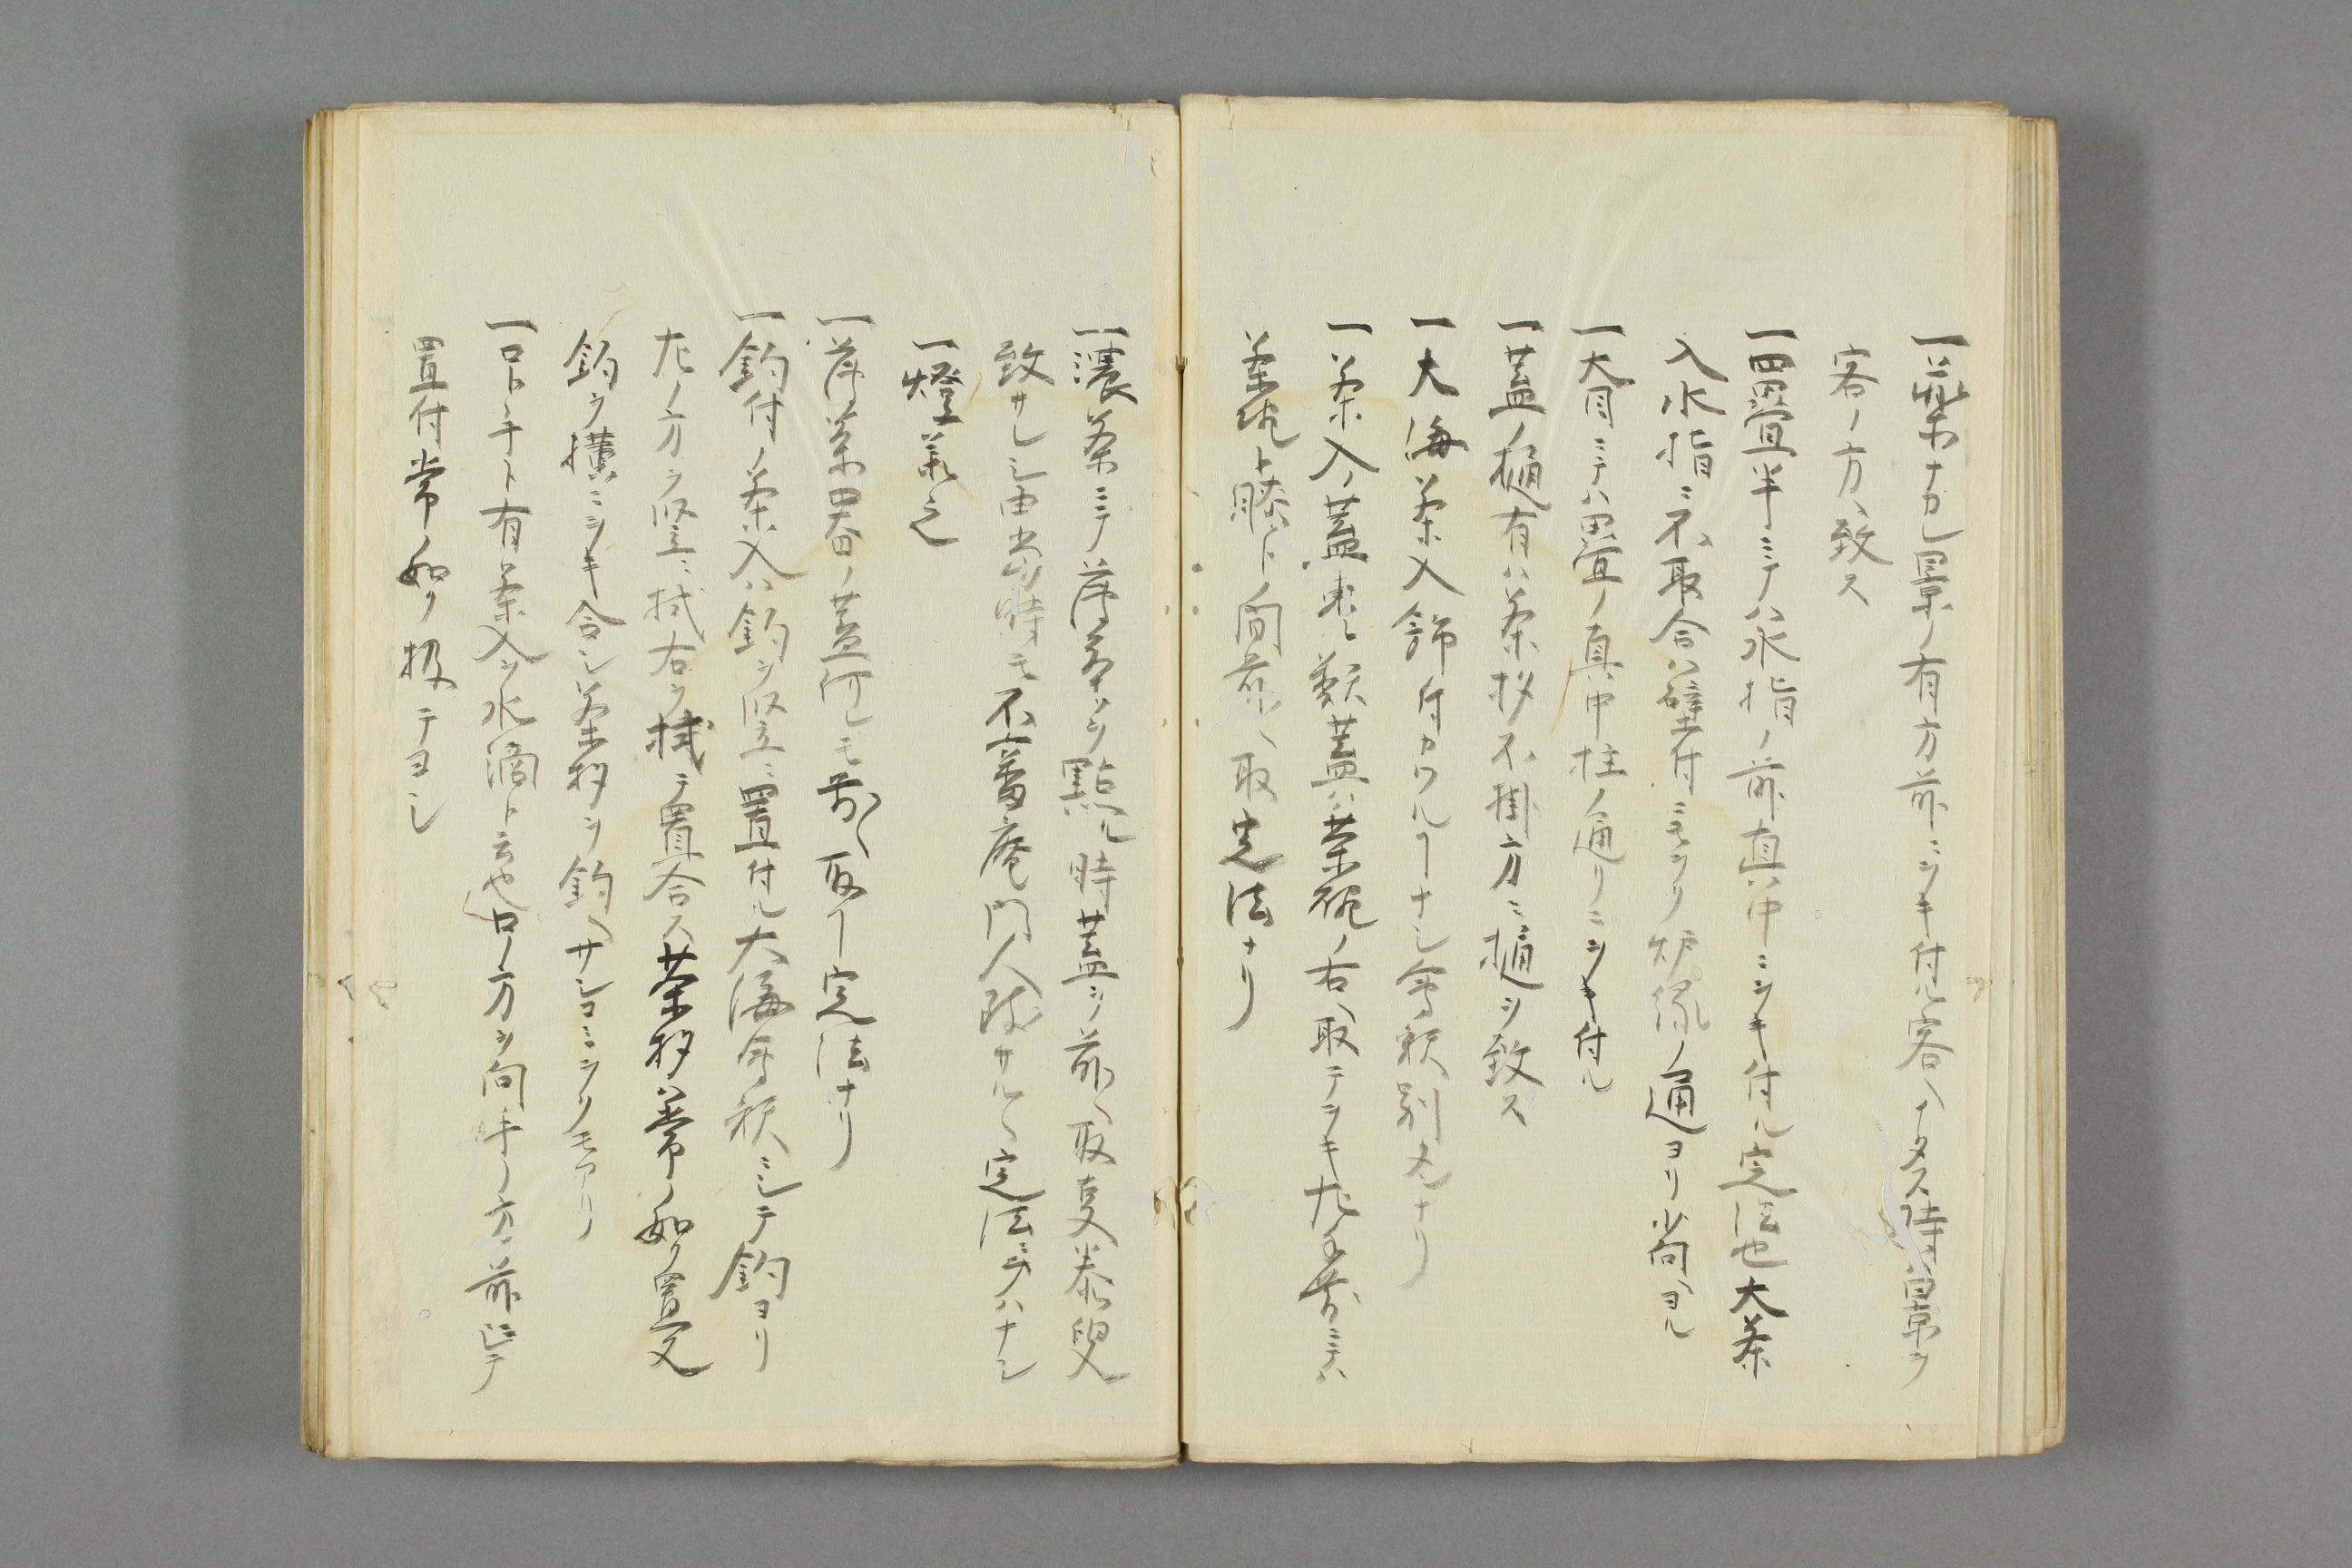 一茶ナカレ景ノ有方前ニツキ付ル客ヘイタス時ハ景ヲ
客ノ方ヘ致ス
一四畳半ニテハ水指ノ前真中ニツキ付ル定法也大茶
入水指ニ不取合ハ壁付ニモヨリ炉縁ノ通ヨリ少向ヘヨル
一大目ニテハ畳ノ真中柱ノ通リニツキ付ル
一蓋ノ樋有ハ茶杓不掛方ニ樋ヲ致ス
一大海茶入飾付カワルヿナシ會釈別ナリ
一茶入ノ蓋棗ノ類蓋ハ茶碗ノ右ヘ取テフキ左手前ニテハ
茶碗ト膝トノ間前ヘ取定法ナリ
一濃茶ニテ薄茶ヲ點ル時蓋ヲ前ヘ取支泰叟
致サレシ由當時モ不審庵門人致サルヽ定法ニテハナシ
一燈義也
一薄茶器ノ蓋何レモ前ヘ取ー定法ナリ
一鈎付ノ茶入ハ鈎ヲ竪ニ置付ル大海會釈ニシテ鈎ヨリ
左ノ方ヲ竪ニ拭右ヲ拭テ置合ス茶杓ハ常ノ如ク置又
鈎ヲ横ニツキ合シ茶杓ヲ鈎ヘサシコミシリモアリ
一口ト手ト有茶入ヲ水滴ト云也口ノ方ヲ向手ノ方ヲ前ニシテ
置付常ノ如ク扱テヨシ